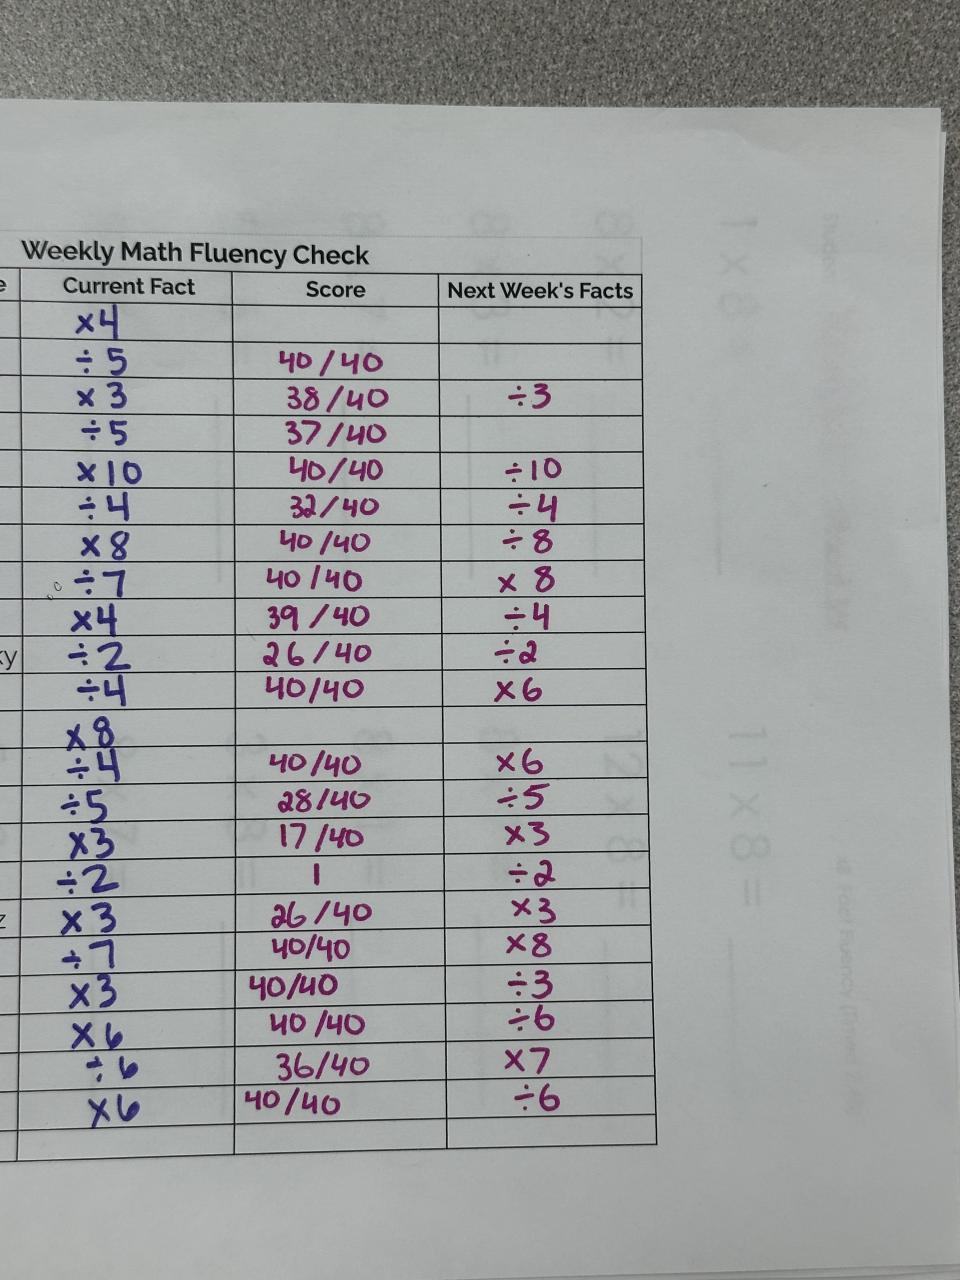 Weekly Math Fluency Check
e Current Fact Score Next Week's Facts
×4
÷5 40/40
×3 38/40 ÷3
÷5 37/40
×10 40/40 ÷10
÷4 32/40 ÷4
×8 40/40 ÷8
÷7 40/40 ×8
×4 39/40 ÷4
ky ÷2 26/40 ÷2
÷4 40/40 ×6
×8
÷4 40/40 ×6
÷5 28/40 ÷5
×3 17/40 ×3
÷2 1 ÷2
z ×3 26/40 ×3
÷7 40/40 ×8
×3 40/40 ÷3
×6 40/40 ÷6
÷6 36/40 ×7
×6 40/40 ÷6